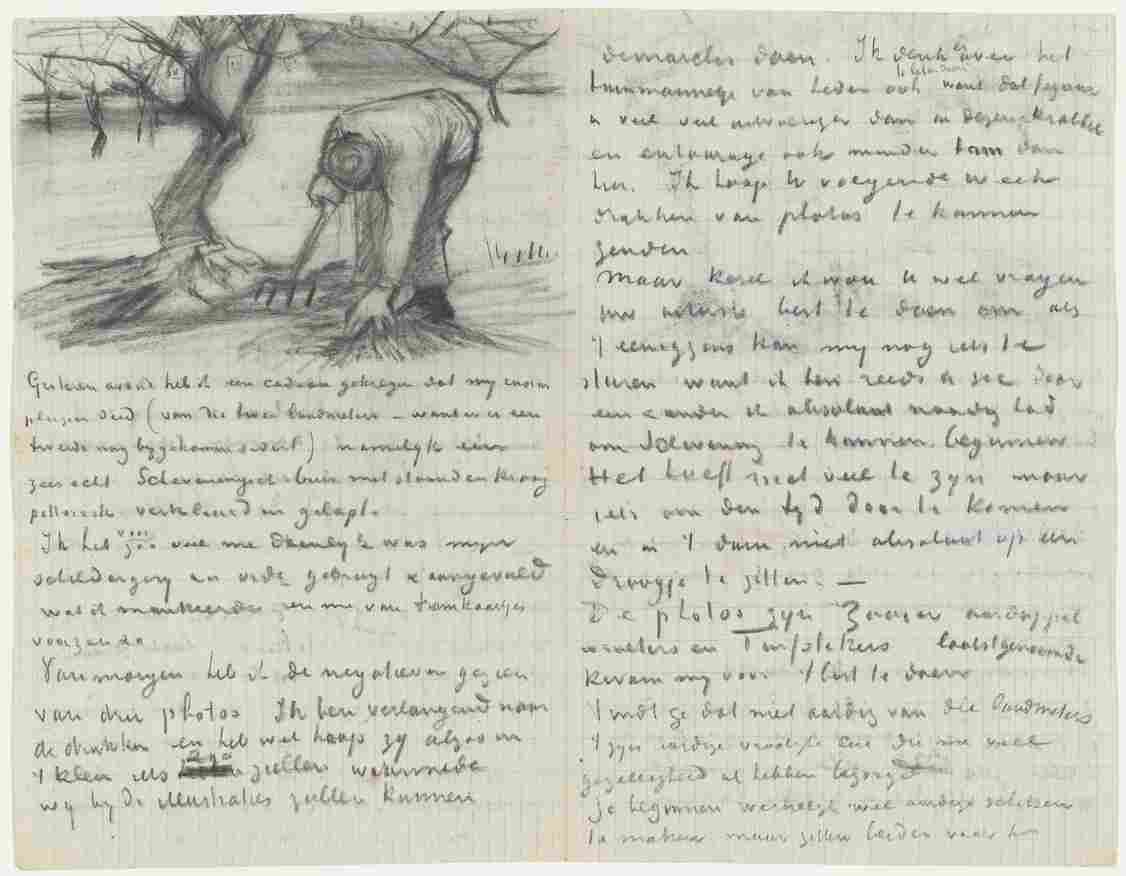 Gisteren avond heb ik een cadeau gekregen dat my enorm
plezier deed (van die twee landmeters – want er is een
tweede nog bygekomen) namelyk een
zeer echt Scheveningsch buis met staanden kraag
pittoresk verkleurd en gelapt.
Ik heb voor zoo veel me doenlyk was myn
schildergerij in orde gebragt & aangevuld
wat ik mankeerde en me van tramkaartjes
voorzien
Van morgen heb ik de negatieven gezien
van drie photos Ik ben verlangend naar
de drukken en heb wel hoop zy alzoo in
't klein iets zullen waarmede
wy by de illustraties zullen kunnen
demarches doen. Ik denk over het
te laten doen
van heden ook want dat
is veel veel dan in deze krabbel
en entourage ook minder tam dan
hier. Ik hoop U volgende week
drukken van photos te kunnen
zenden
Maar kerel ik wou U wel vragen
uw best te doen om als
't eenigzins kan my nog iets te
sturen want ik ben reeds door
een en ander ik absoluut noodig had
om Schevening te kunnen beginnen
Het hoeft niet veel te zyn maar
iets om den tyd door te komen
en in 't duin niet absoluut op een
droogje te zitten. —
De photos zyn Zaaier aardappel
en Turfstekers laatstgenoemde
kwam my voor 't best te doen
Vindt ge dat niet aardig van die landmeters
't zyn aardige vroolyke lui die me veel
gezelligheid al hebben bezorgd
Ze beginnen werkelyk wel aardige schetsen
te maken maar zitten beiden voor hun